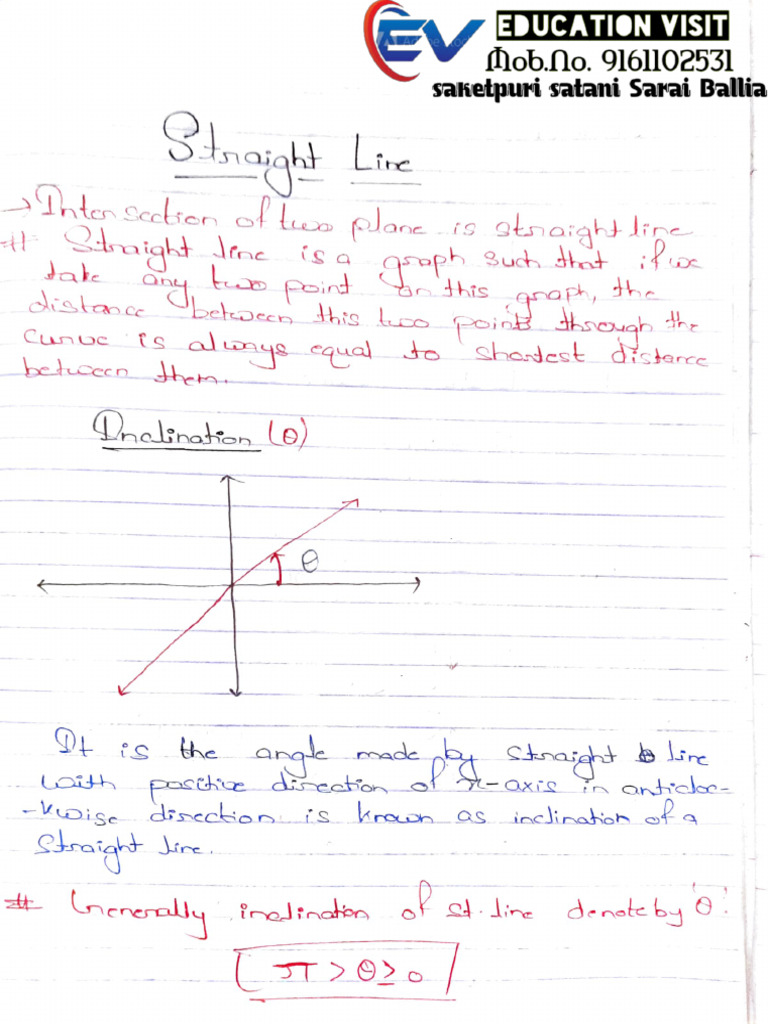 EV EDUCATION VISIT
Mob.No. 9161102531
saketpuri satani Sarai Ballia
Straight Line
→ Intersection of two plane is straight line
# Straight line is a graph such that if we
take any two point on this graph, the
distance between this two points through the
curve is always equal to shortest distance
between them.
Inclination (θ)
θ
It is the angle made by straight line
with positive direction of x-axis in anticloc-
-kwise direction is known as inclination of a
straight line.
# Generally inclination of st. line denote by 'θ'.
π > θ ≥ 0